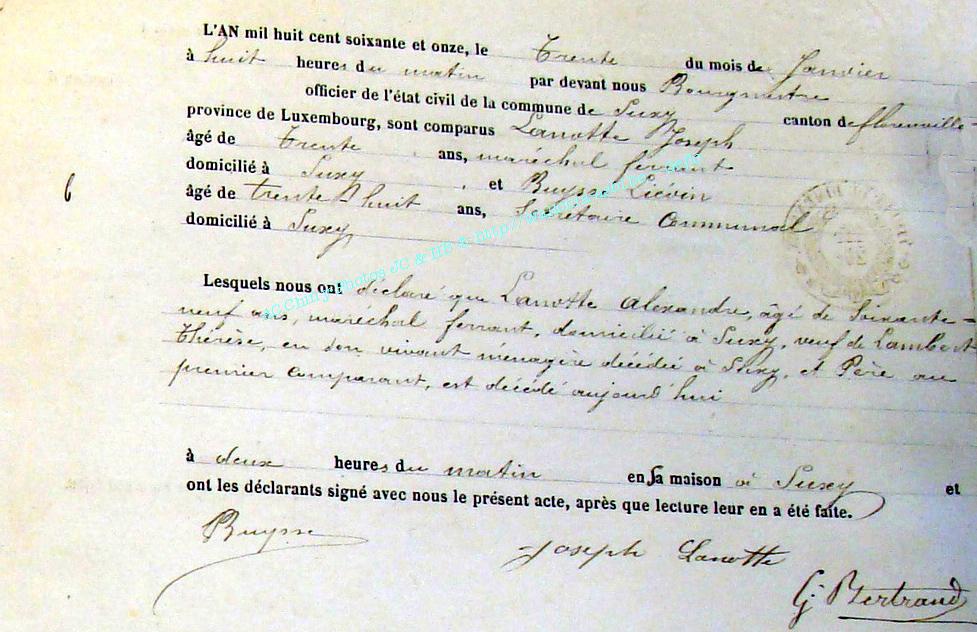 L'AN mil huit cent soixante et onze, le Trente du mois de Janvier
à huit heures du matin par devant nous Bourgmestre
officier de l'état civil de la commune de Suxy canton de florenville
province de Luxembourg, sont comparus Lanotte Joseph
âgé de Trente ans, maréchal ferrant
domicilié à Suxy et Buysse Liévin
âgé de trente-huit ans, Secrétaire Communal
domicilié à Suxy
6
Lesquels nous ont déclaré que Lanotte Alexandre, âgé de Soixante-
neuf ans, maréchal ferrant, domicilié à Suxy, veuf de Lambert
Thérèse, en son vivant ménagère décédée à Suxy, et Père au
premier comparant, est décédé aujourd'hui
à deux heures du matin en sa maison à Suxy et
ont les déclarants signé avec nous le présent acte, après que lecture leur en a été faite.
Buysse
Joseph Lanotte
G. Bertrand